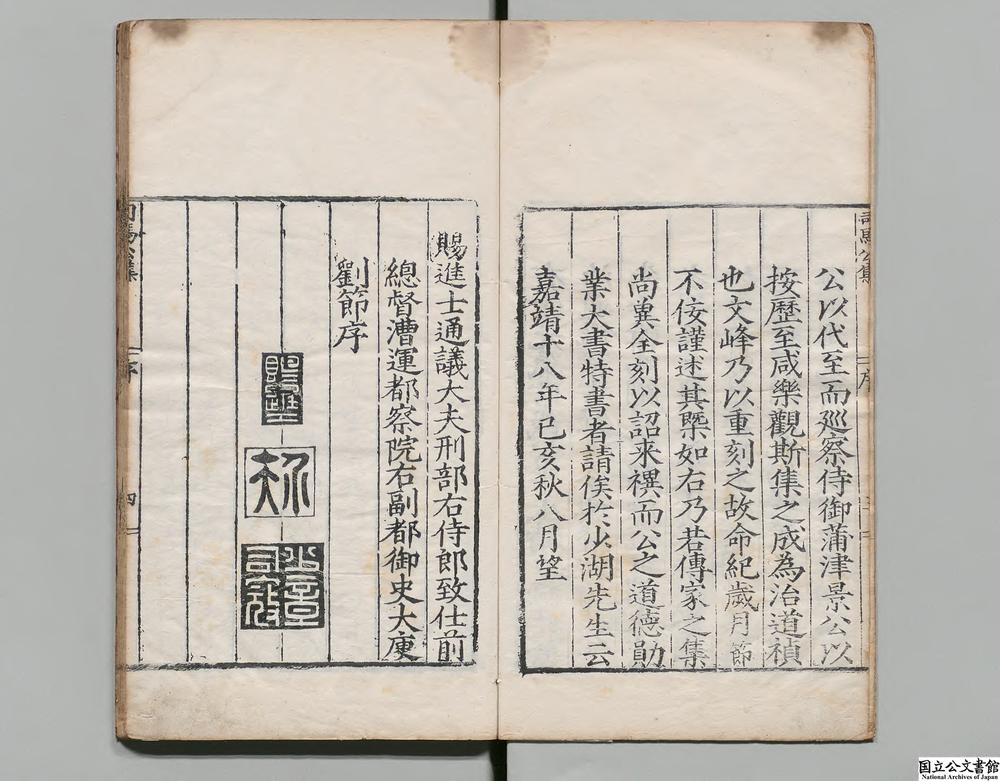 公以代至而廵察侍御蒲津景公以
按歷至咸樂觀斯集之成為治道禎
也文峰乃以重刻之故命紀歲月節
不佞謹述其槩如右乃若傳家之集
尚兾全刻以詔来禩而公之道德勛
業大書特書者請俟扵少湖先生云
嘉靖十八年已亥秋八月望
賜進士通議大夫刑部右侍郎致仕前
總督漕運都察院右副都御史大庾
劉節序
司馬公集
序
四
国立公文書館
National Archives of Japan